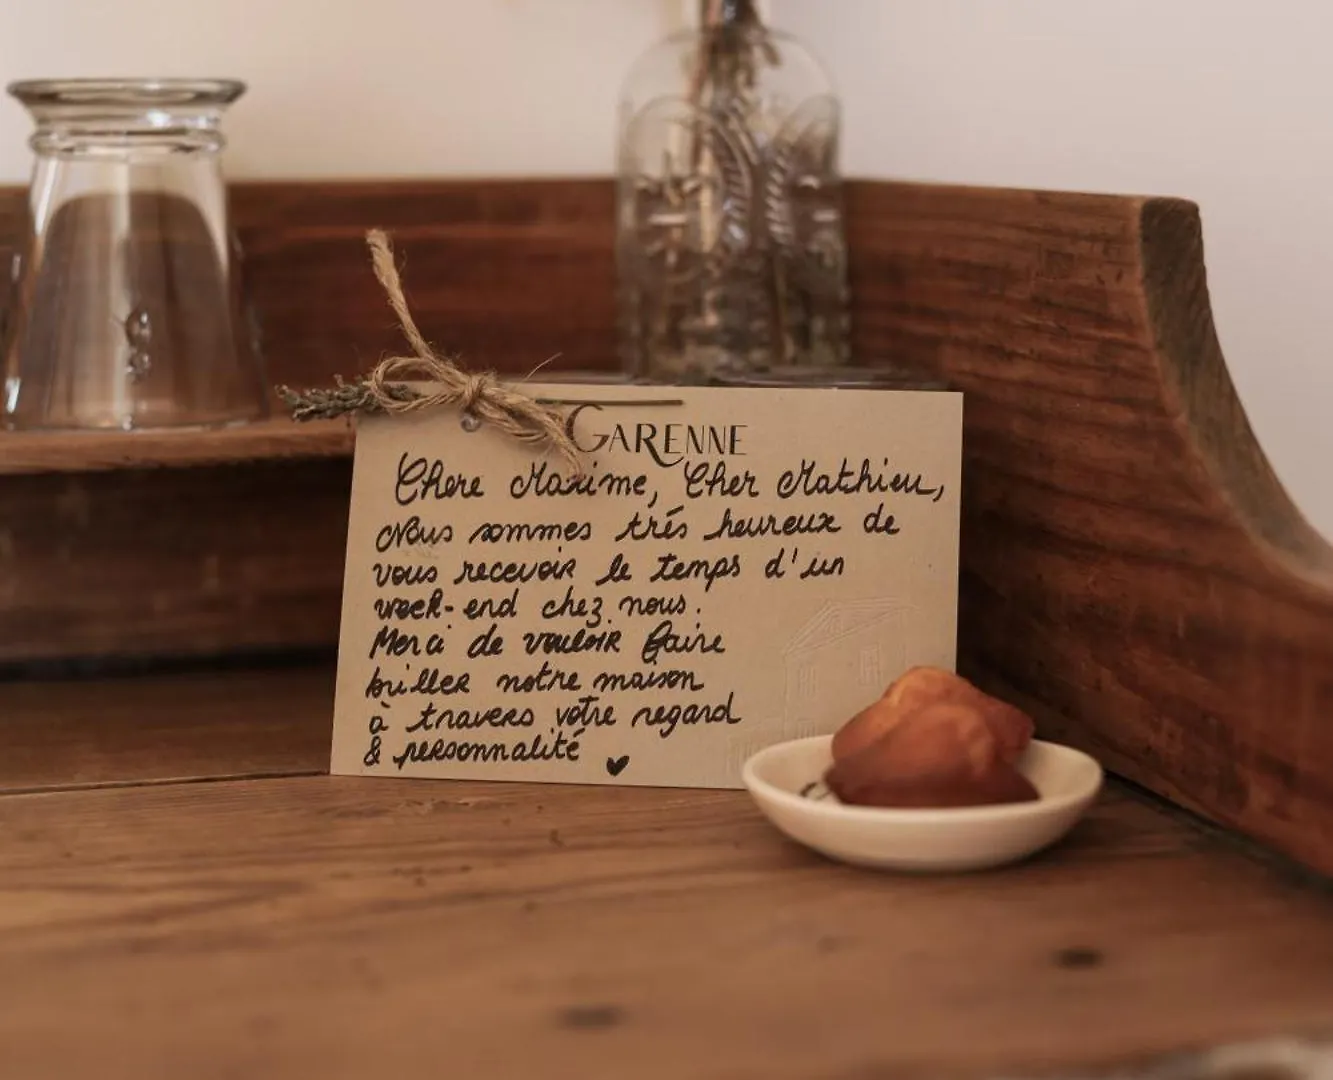 GARENNE
Chere Maxime, Cher Mathieu,
Nous sommes très heureux de
vous recevoir le temps d'un
week-end chez nous.
Merci de vouloir faire
briller notre maison
à travers votre regard
& personnalité ♥